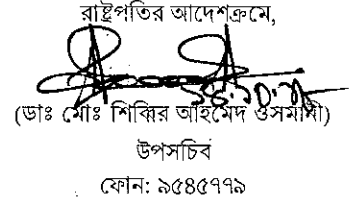 রাষ্ট্রপতির আদেশক্রমে,
(ডাঃ মোঃ শিব্বির আহমেদ ওসমানী)
উপসচিব
ফোন: ৯৫৪৫৭৭৯